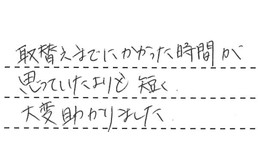 取替えまでにかかった時間が
思っていたよりも 短く
大変助かりました